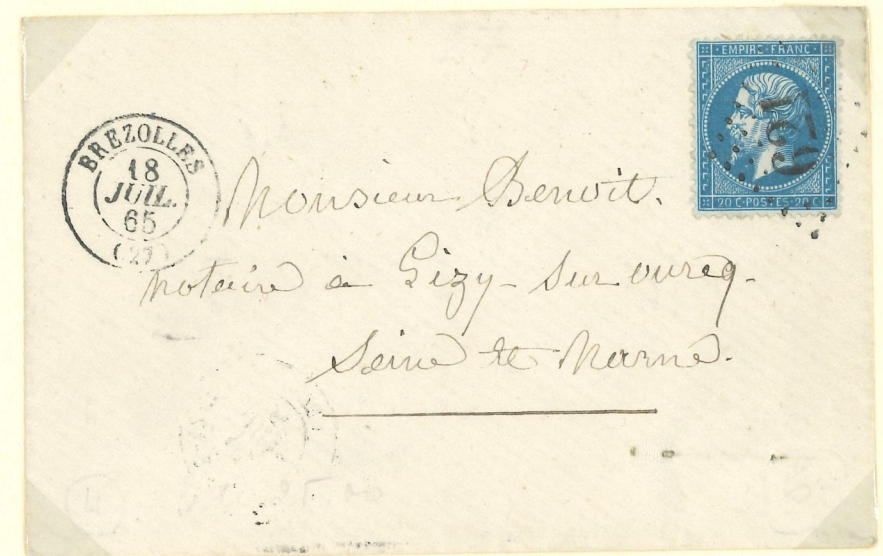 EMPIRE · FRANC ·
20 C · POSTES · 20 C
BREZOLLES
18
JUIL.
65
(27)
Monsieur Benoit.
notaire à Lizy-sur ourcq.
Seine et Marne.